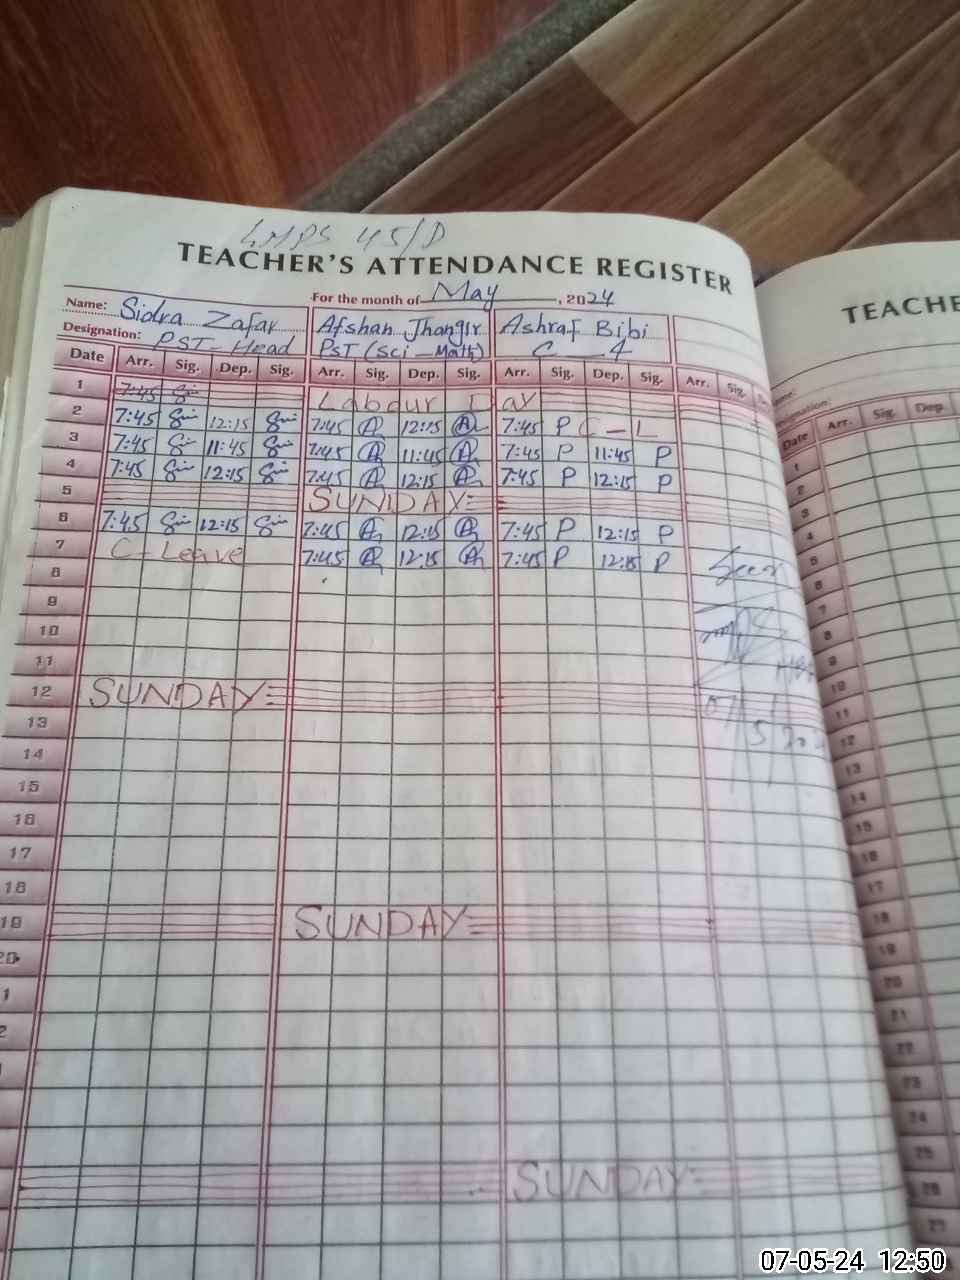 GMPS 45/D
TEACHER'S ATTENDANCE REGISTER
For the month of May, 2024
Name: Sidra Zafar Afshan Jhangir Ashraf Bibi
Designation: PST-Head PST (Sci-Math) C-4
Date Arr. Sig. Dep. Sig. Arr. Sig. Dep. Sig. Arr. Sig. Dep. Sig. Arr. Sig.
1 7:45 Labour Day
2 7:45 12:15 7:45 12:15 7:45 P C-L
3 7:45 11:45 7:45 11:45 7:45 P 11:45 P
4 7:45 12:15 7:45 12:15 7:45 P 12:15 P
5 SUNDAY
6 7:45 12:15 7:45 12:15 7:45 P 12:15 P
7 C-Leave 7:45 12:15 7:45 P 12:15 P
8 Seen
9
10
11
12 SUNDAY 07/5/202
13
14
15
16
17
18
19 SUNDAY
20
1
2
SUNDAY
TEACHE
Date Arr. Sig. Dep.
1
2
3
4
5
6
7
8
9
10
11
12
13
14
15
16
17
18
19
20
21
22
23
24
25
26
27
07-05-24 12:50